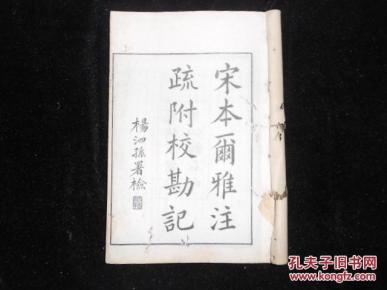 宋本爾雅注
疏附校勘記
楊泗孫署檢
孔夫子旧书网